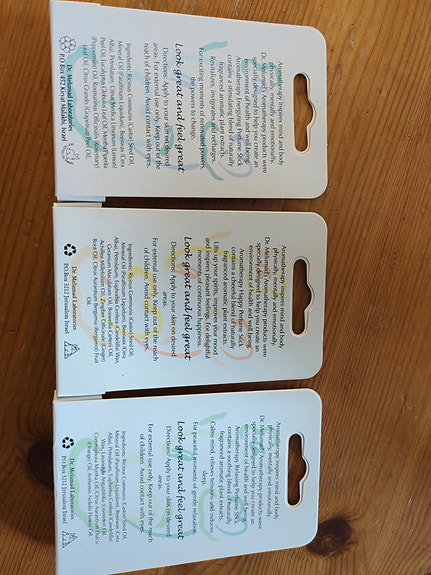 Aromatherapy inspires mind and body
physically, mentally and emotionally.
Dr. Melumad's Aromatherapy products were
specially designed to help you create an
environment of health and well being.
Aromatherapy Energizing Perfume Stick
contains a stimulating blend of naturally
fragranced aromatic plant extracts.
Revitalizes, invigorates and recharges.
For exciting moments of renewed powers,
the powers to change.
Look great and feel great
Directions: Apply to your skin on desired
areas. For external use only. Keep out of the
reach of children. Avoid contact with eyes.
Ingredients: Ricinus Communis (Castor) Seed Oil,
Mineral Oil (Paraffinum Liquidum), Beeswax (Cera
Alba), Petrolatum, Citrus Medica Limonum (Lemon)
Peel Oil, Eucalyptus Globulus Leaf Oil, Mentha Piperita
(Peppermint) Oil, Rosmarinus Officinalis (Rosemary)
Leaf Oil, Citrus Grandis (Grapefruit) Peel Oil.
Dr. Melumad Laboratories
P.O Box 452 Kiryat Malakhi, Israel
Aromatherapy inspires mind and body
physically, mentally and emotionally.
Dr. Melumad's Aromatherapy products were
specially designed to help you create an
environment of health and well being.
Aromatherapy Happy Perfume Stick
contains a cheerful blend of naturally
fragranced aromatic plant extracts.
Lifts up your spirits, improves your mood
and inspires joyous feelings. For delightful
moments of continuous happiness.
Look great and feel great
Directions: Apply to your skin on desired
areas.
For external use only. Keep out of the reach
of children. Avoid contact with eyes.
Ingredients: Ricinus Communis (Castor) Seed Oil,
Mineral Oil (Paraffinum Liquidum), Beeswax (Cera
Alba), Petrolatum, Euphorbia Cerifera (Candelilla) Wax,
Geranium Maculatum Oil, Boswellia Carterii Oil,
Achillea Millefolium Oil, Zingiber Officinale (Ginger)
Root Oil, Citrus Aurantium Bergamia (Bergamot) Fruit
Oil.
Dr. Melumad Laboratories
P.O.Box 3221 Jerusalem Israel
Aromatherapy inspires mind and body
physically, mentally and emotionally.
Dr. Melumad's Aromatherapy products were
specially designed to help you create an
environment of health and well being.
Aromatherapy Relaxing Perfume Stick
contains a soothing blend of naturally
fragranced aromatic plant extracts.
Calms mind, relieves tension and induces
sleep.
For peaceful moments of gentle relaxation.
Look great and feel great
Directions: Apply to your skin on desired
areas.
For external use only. Keep out of the reach
of children. Avoid contact with eyes.
Ingredients: Ricinus Communis (Castor) Seed Oil,
Mineral Oil (Paraffinum Liquidum), Beeswax (Cera
Alba), Petrolatum, Euphorbia Cerifera (Candelilla)
Wax, Lavandula Angustifolia (Lavender) Oil,
Commiphora Myrrha Oil, Citrus Aurantium Dulcis
(Orange) Flower Oil.
Dr. Melumad Laboratories
P.O.Box 3221 Jerusalem Israel